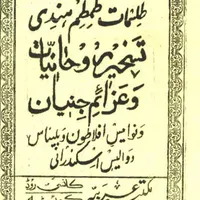 طلمات طمطم ہندی
تسخیر روحانیات
وعزائم جنیان
ونوامیس افلاطون وبلیناس
دوالیس اسکندرانی
مکتبہ